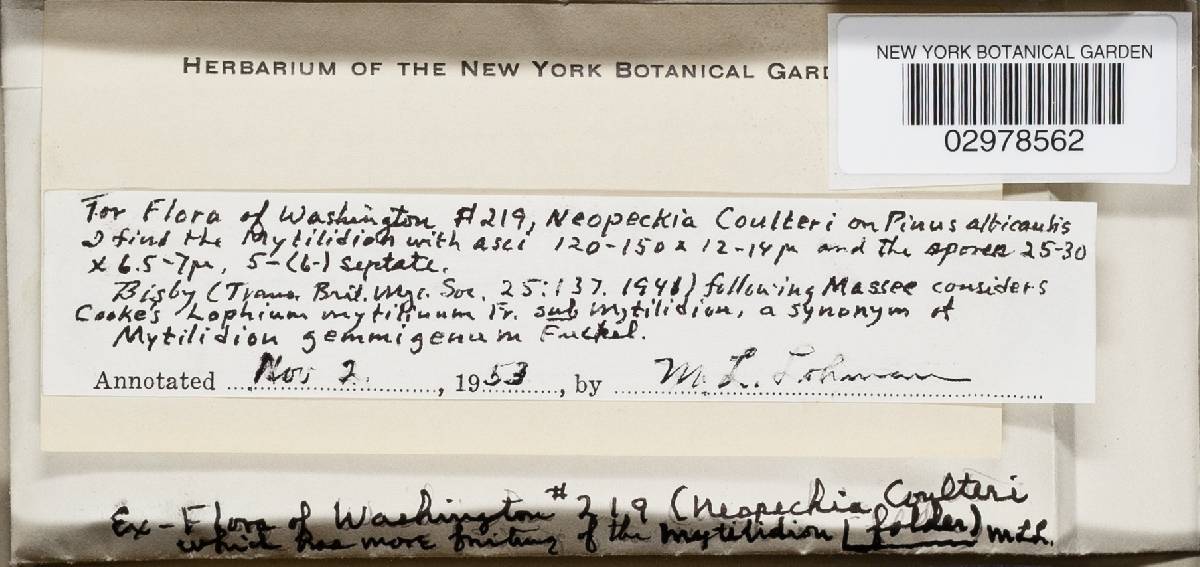 HERBARIUM OF THE NEW YORK BOTANICAL GARD
NEW YORK BOTANICAL GARDEN
02978562
For Flora of Washington #219, Neopeckia Coulteri on Pinus albicaulis
I find the Mytilidion with asci 120-150 x 12-14µ and the spores 25-30
x 6.5-7µ, 5-(6-) septate.
Bisby (Trans. Brit. Myc. Soc. 25:137. 1941) following Massee considers
Cooke's Lophium mytilinum Fr. sub Mytilidion, a synonym of
Mytilidion gemmigenum Fuckel.
Annotated Nov 2, 1953, by M. L. Lohman
Ex-Flora of Washington #219 (Neopeckia Coulteri
which has more fruiting of the Mytilidion [folder) MLL.